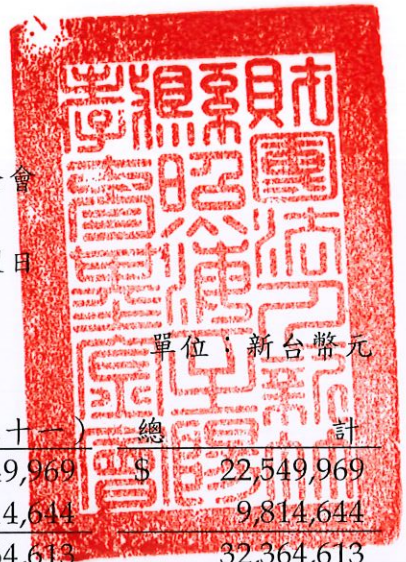 財團法人新竹
縣
基金會
會
日
單位：新台幣元
十一) 總 計
9,969 $ 22,549,969
4,644 9,814,644
4,613 32,364,613